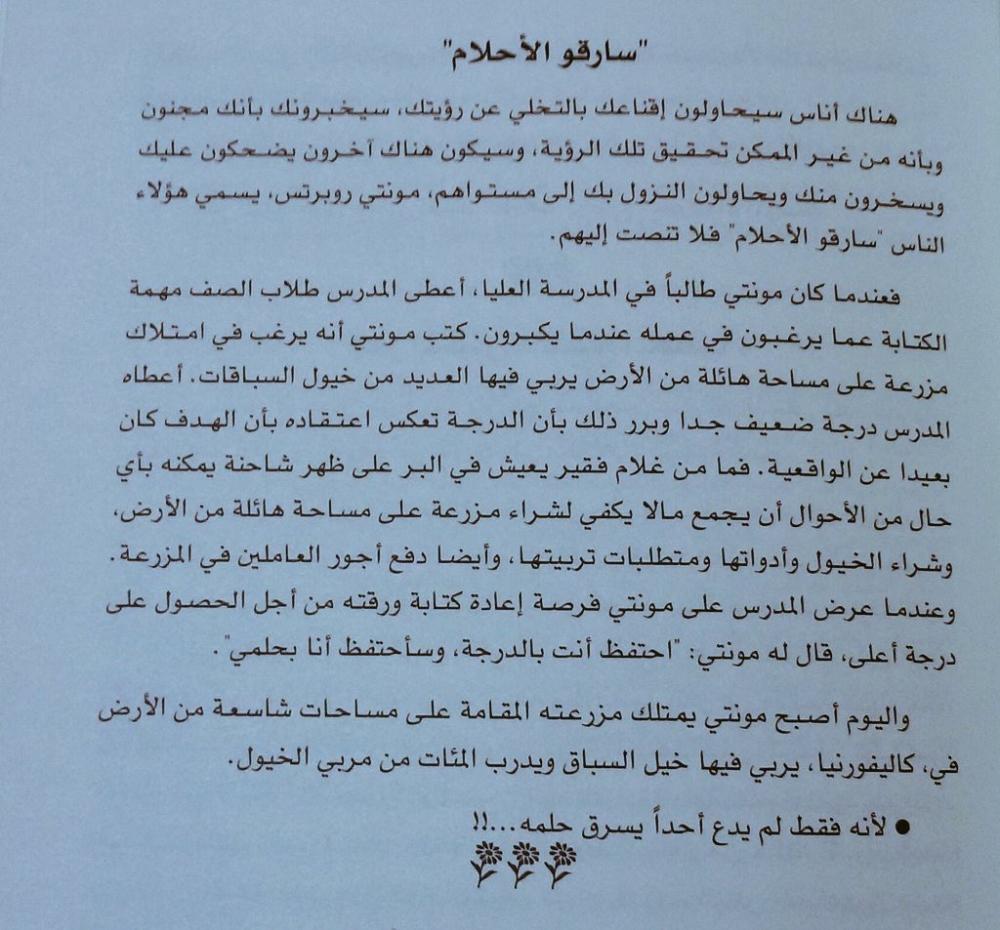 "سارقو الأحلام"
هناك أناس سيحاولون إقناعك بالتخلي عن رؤيتك، سيخبرونك بأنك مجنون
وبأنه من غير الممكن تحقيق تلك الرؤية، وسيكون هناك آخرون يضحكون عليك
ويسخرون منك ويحاولون النزول بك إلى مستواهم، مونتي روبرتس، يسمي هؤلاء
الناس "سارقو الأحلام" فلا تنصت إليهم.
فعندما كان مونتي طالباً في المدرسة العليا، أعطى المدرس طلاب الصف مهمة
الكتابة عما يرغبون في عمله عندما يكبرون. كتب مونتي أنه يرغب في امتلاك
مزرعة على مساحة هائلة من الأرض يربي فيها العديد من خيول السباقات. أعطاه
المدرس درجة ضعيف جدا وبرر ذلك بأن الدرجة تعكس اعتقاده بأن الهدف كان
بعيدا عن الواقعية. فما من غلام فقير يعيش في البر على ظهر شاحنة يمكنه بأي
حال من الأحوال أن يجمع مالا يكفي لشراء مزرعة على مساحة هائلة من الأرض،
وشراء الخيول وأدواتها ومتطلبات تربيتها، وأيضا دفع أجور العاملين في المزرعة.
وعندما عرض المدرس على مونتي فرصة إعادة كتابة ورقته من أجل الحصول على
درجة أعلى، قال له مونتي: "احتفظ أنت بالدرجة، وسأحتفظ أنا بحلمي".
واليوم أصبح مونتي يمتلك مزرعته المقامة على مساحات شاسعة من الأرض
في، كاليفورنيا، يربي فيها خيل السباق ويدرب المئات من مربي الخيول.
● لأنه فقط لم يدع أحداً يسرق حلمه...!!